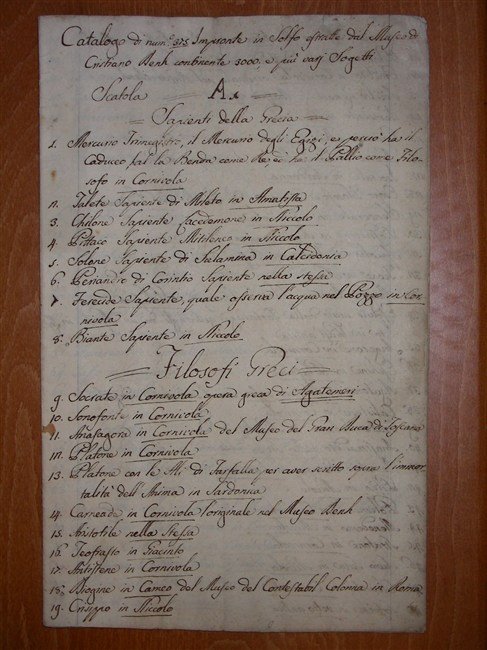 Catalogo di num.º 375 Impronte in Solfo estratte dal Museo di
Cristiano Denh continente 3000, e più varj Sogetti
Scatola A.
Sapienti della Grecia
1. Mercurio Trimegistro, il Mercurio degli Egizj, e perciò ha il
Caduceo, fal la Benda come Re e ha il Pallio come Filo-
sofo in Corniola
2. Talete Sapiente di Mileto in Amatista
3. Chilone Sapiente Lacedemone in Niccolo
4. Pittaco Sapiente Mitileneo in Niccolo
5. Solone Sapiente di Salamina in Calcidonia
6. Periandro di Corinto Sapiente nella stessa
7. Ferecide Sapiente, quale osserva l'acqua nel Pozzo, in Cor-
nivola
8. Biante Sapiente in Niccolo
Filosofi Greci
9. Socrate in Cornivola opera greca di Agatemeri
10. Sonofonte in Cornivola
11. Anasagora in Cornivola del Museo del Gran Duca di Toscana
12. Platone in Cornivola
13. Platone con le Ali di Farfalla per aver scritto sovra l'immor-
talità dell'Anima in Sardonica
14. Carneade in Cornivola l'originale nel Museo Denh
15. Aristotile nella Stessa
16. Teofrasto in Giacinto
17. Antistene in Cornivola
18. Diogine in Cameo del Museo del Contestabil Colonna in Roma
19. Crisippo in Niccolo